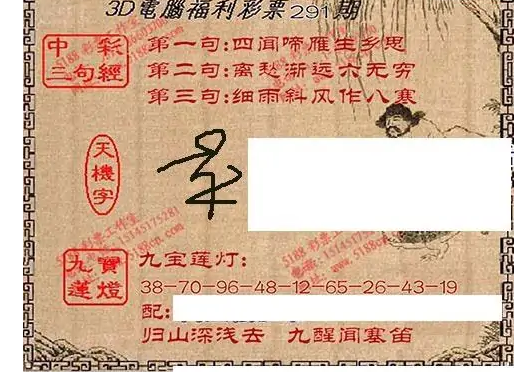 3D電腦福利彩票291期
中彩
三句經
第一句:四闻啼雁生乡思
第二句:离愁渐远六无穷
第三句:细雨斜风作八寒
天機字
九寶
蓮燈
九宝莲灯:
38-70-96-48-12-65-26-43-19
配:
归山深浅去 九醒闻塞笛